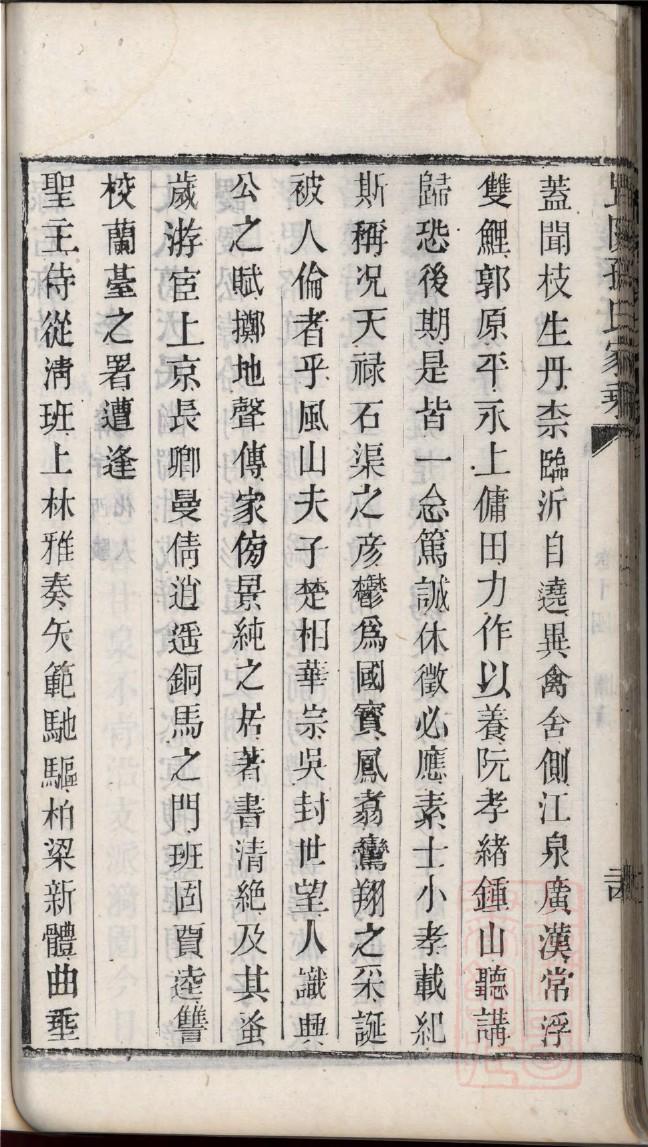 蓋聞枝生丹柰臨沂自遶異禽舍側江泉廣漢常浮
雙鯉郭原平永上傭田力作以養阮孝緒鍾山聽講
歸恐後期是皆一念篤誠休徵必應素士小孝載紀
斯稱况天禄石渠之彦鬱爲國寶鳳翥鸞翔之采誕
被人倫者乎風山夫子楚相華宗吳封世望人識興
公之賦擲地聲傳家傍景純之居著書清絶及其蚤
歲游宦上京長卿曼倩逍遥銅馬之門班固賈逵讐
校蘭臺之署遭逢
聖主侍從清班上林雅奏矢範馳驅柏梁新體曲垂
孫氏家乘